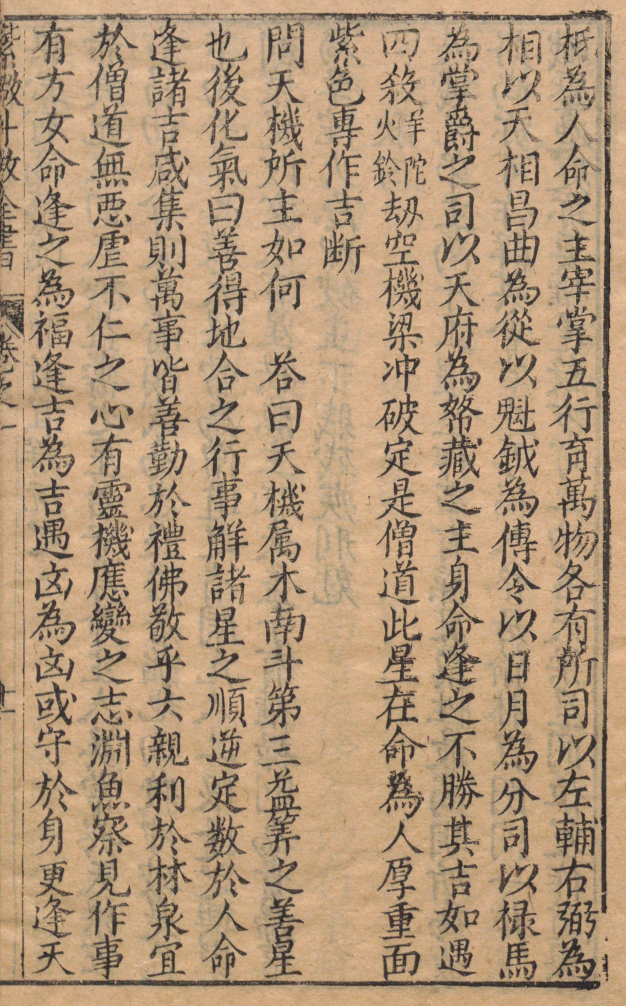 秪為人命之主宰掌五行育萬物各有所司以左輔右弼為
相以天相昌曲為從以魁鉞為傳令以日月為分司以禄馬
為掌爵之司以天府為帑藏之主身命逢之不勝其吉如遇
四殺羊陀火鈴劫空機梁冲破定是僧道此星在命為人厚重面
紫色專作吉断
問天機所主如何 荅曰天機属木南斗第三益筭之善星
也後化氣曰善得地合之行事解諸星之順逆定数於人命
逢諸吉咸集則萬事皆善勤於禮佛敬乎六親利於林泉宜
於僧道無惡虐不仁之心有靈機應變之志淵魚察見作事
有方女命逢之為福逢吉為吉遇凶為凶或守於身更逢天